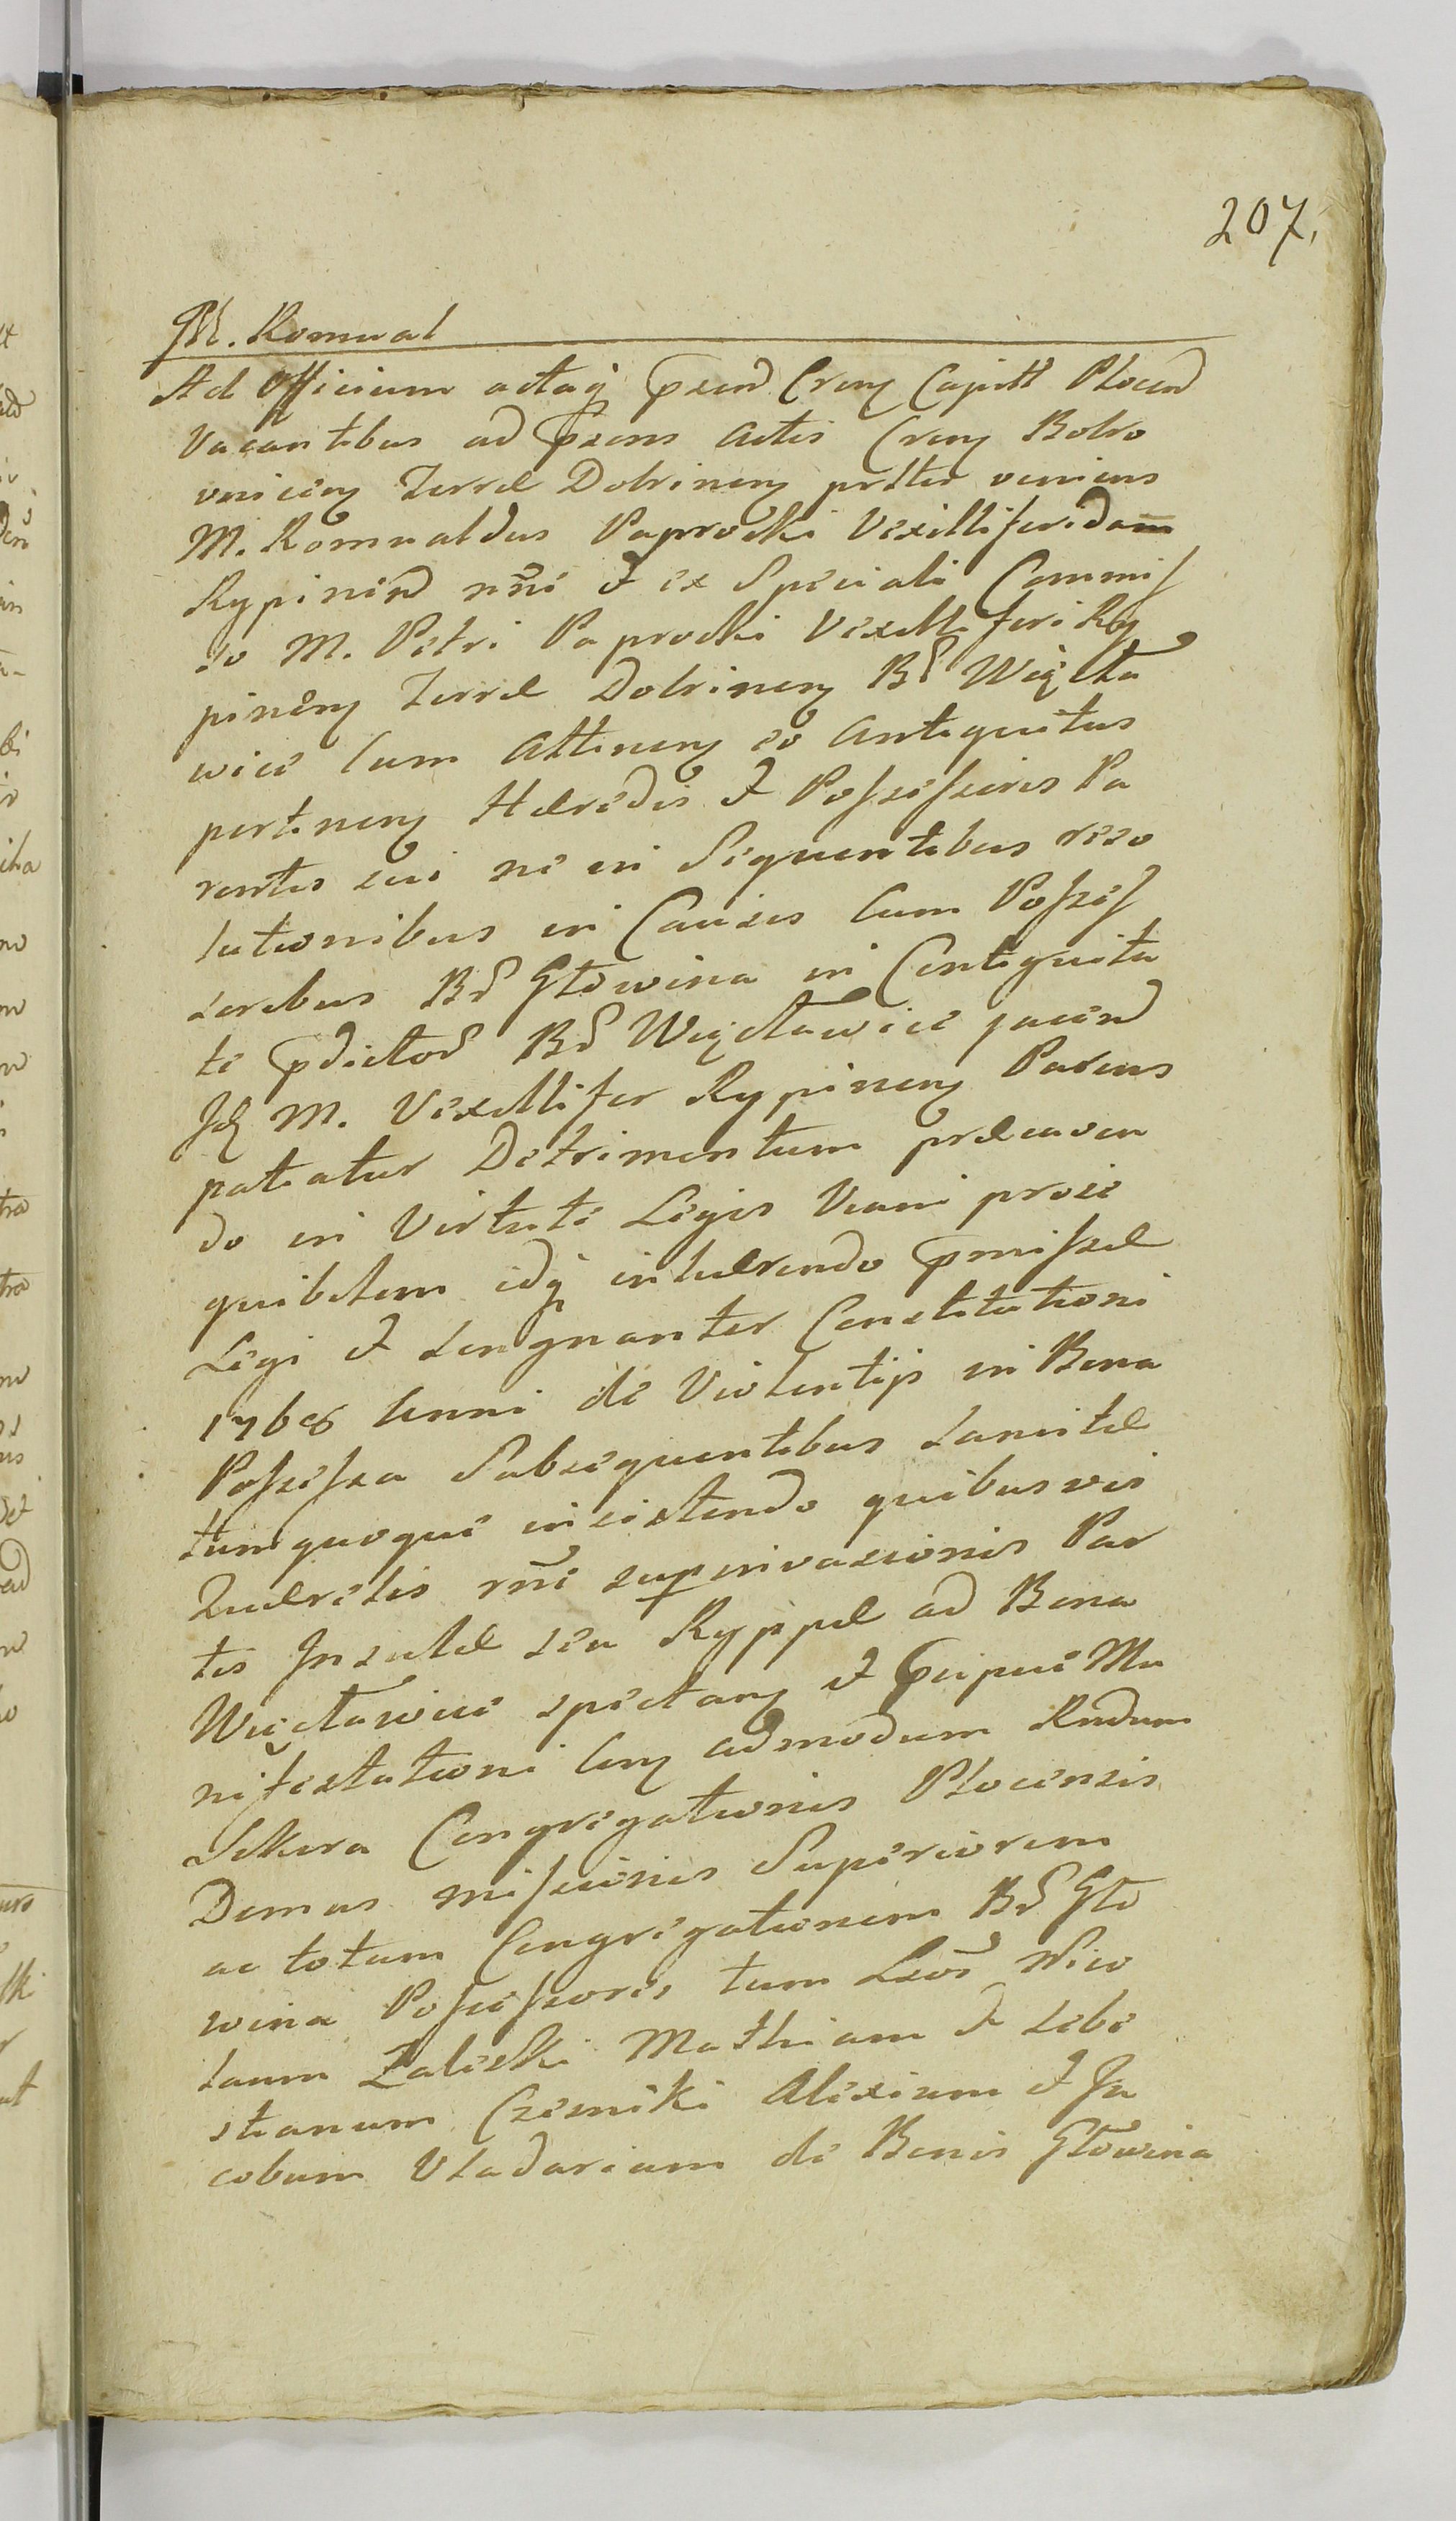 207.
M. Romual
Ad Officium actaq̃ p̃send Cren̄ Capitt Plocend
Vacantibus ad p̃sens Actis Cren̄ Bobro
vnicen̄ Terræ Dobrinen̄ prlter veniens
M. Romualdus Paprocki Vexilliferidam
Rypinend nñi et ex Speciali Commis
so M. Petri Paprocki Vexilliferi Ry
pinen̄ Terræ Dobrinen̄ Br Więcła
wice Cum Attinen̄ eo Antiquitus
pertinen̄ Hæredis et Possessoris Pa
rentis sui ne in Sequentibus reso
lutionibus in Causis Cum Posses
soribus Br Głowina in Contiguita
te p̃dictor Br Więcławice jacend
M. Vexillifer Rypinen̄ Parens
patiatur Detrimentum præcaven
do in Virtute Legis Vani prose
quibilem idq̃ inhærendo p̃missæ
Legi et Constitutioni
1768 Anni de Violentijs in Bona
Possessa Subsequentibus Sancitæ
tumquoque insistendo quibusvis
Quærelis rñe invasionis Par
tis Insulæ seu Kęppæ ad Bona
Więcławice spectan̄ et Ma
nifestationi Con̄ admodum Rndum
Sikora Congregationis Plocensis
Domus missionis Superiorem
ac totam Congregationem Br Gło
wina Possessores tum Nico
laum Zaleski Mathiam et Seba
stianum Czesniki Alexium et Ja
cobum Vladarium de Bonis Głowina